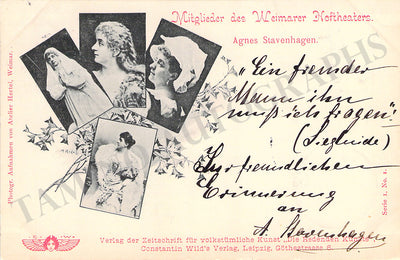 Mitglieder des Weimarer Hoftheaters.
Agnes Stavenhagen.
„Ein fremder
Mann ihn
muß ich fragen!"
(Sieglinde)
Zur freundlichen
Erinnerung
an
A. Stavenhagen
Photogr. Aufnahmen von Atelier Hertel, Weimar.
Serie 1. No. 2.
Verlag der Zeitschrift für volkstümliche Kunst „Die Redenden Künste"
Constantin Wild's Verlag, Leipzig, Göthestrasse 6.
TAMINO AUTOGRAPHS